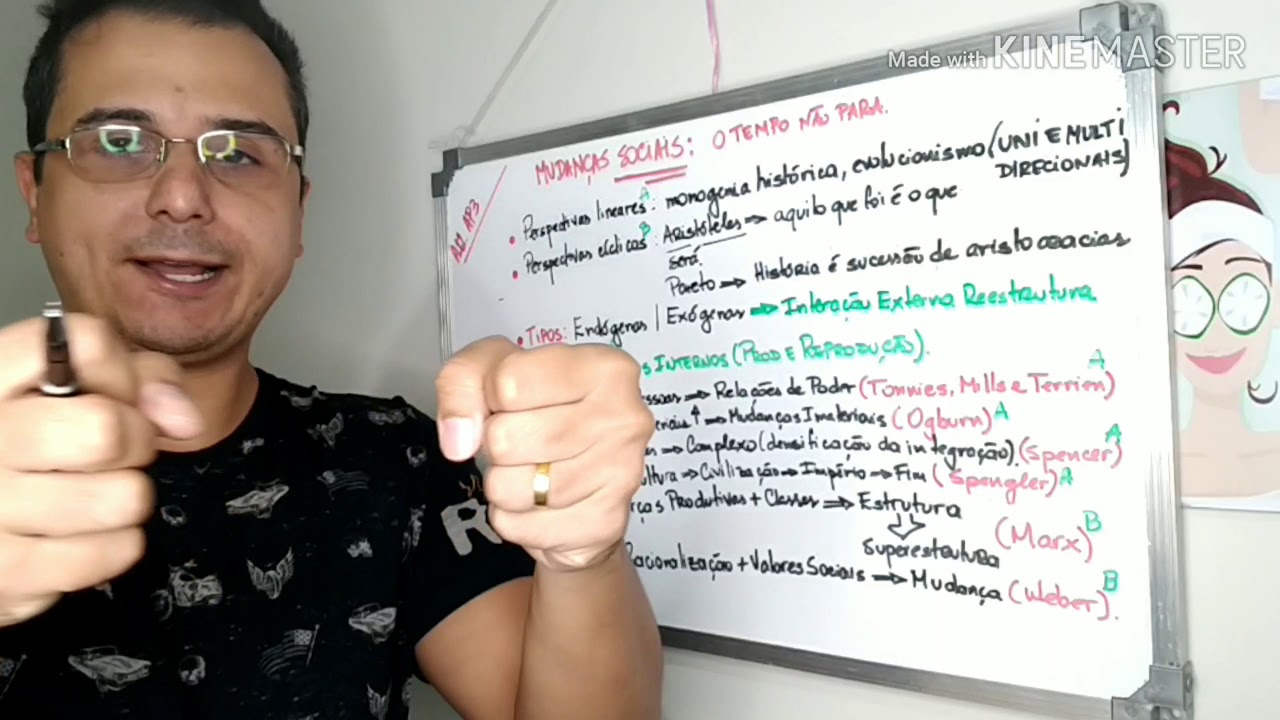 Made with KINEMASTER
MUDANÇAS SOCIAIS: O TEMPO NÃO PARA.
AP3
• Perspectivas lineares A: monogenia histórica, evolucionismo (UNI E MULTI
DIRECIONAIS)
• Perspectivas cíclicas B: Aristóteles → aquilo que foi é o que
será.
Pareto → História é sucessão de aristocracias
• TIPOS: Endógenas | Exógenas → Interação Externa Reestrutura
INTERNOS (PROD E REPRODUÇÃO).
→ Relações de Poder (Tonnies, Mills e Terrien) A
↑ → Mudanças Imateriais (Ogburn) A
→ Complexo (densificação da integração). (Spencer) A
→ Civilização → Império → Fim (Spengler) A
Produtivas + Classes → Estrutura
↓
Superestrutura (Marx) B
Racionalização + Valores Sociais → Mudança (Weber). B